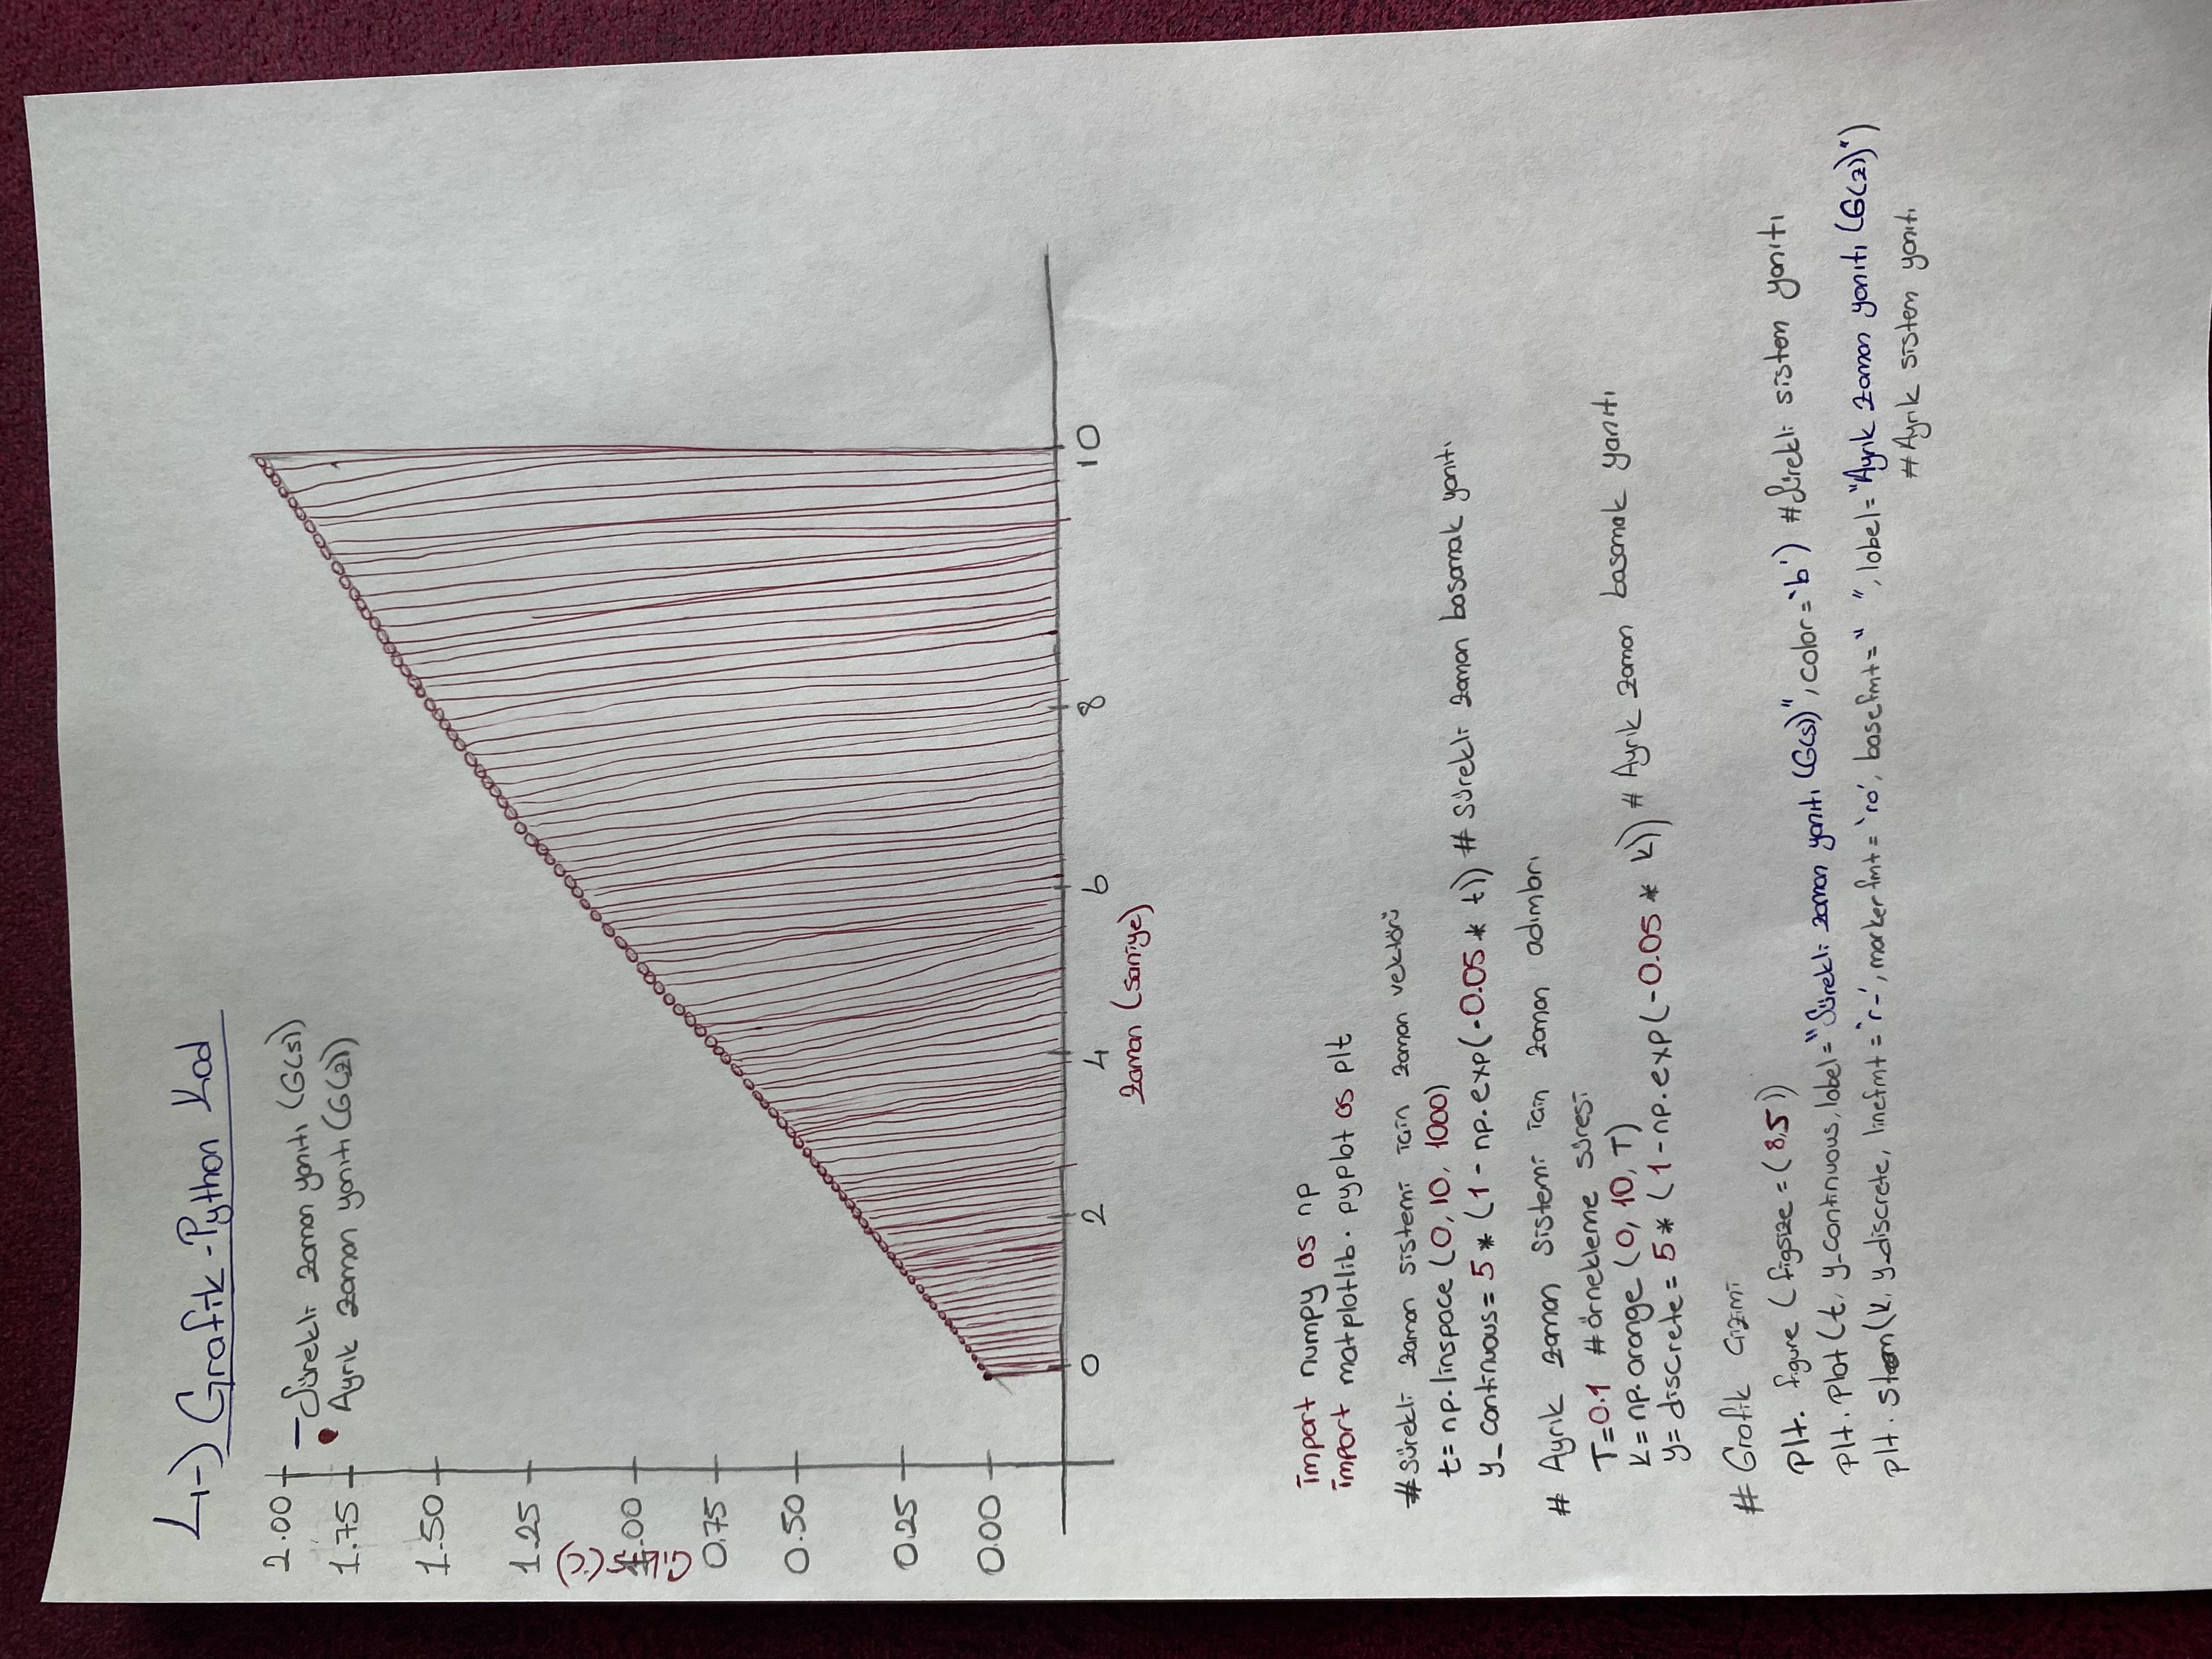 4-) Grafik-Python Kod
2.00
— Sürekli zaman yanıtı (G(s))
1.75
Ayrık zaman yanıtı (G(z))
1.50
1.25
Çıkış(°C)
1.00
0.75
0.50
0.25
0.00
0 2 4 6 8 10
Zaman (saniye)
import numpy as np
import matplotlib.pyplot as plt
# Sürekli zaman sistemi için zaman vektörü
t= np.linspace (0, 10, 1000)
y_continuous= 5 * (1 - np.exp(-0.05 * t)) # Sürekli zaman basamak yanıtı
# Ayrık zaman sistemi için zaman adımları
T=0.1 #örnekleme süresi
k= np.arange (0, 10, T)
y= discrete = 5* (1-np.exp(-0.05 * k)) # Ayrık zaman basamak yanıtı
# Grafik Çizimi
plt. figure (figsize = (8,5))
plt. plot (t, y_continuous, label="Sürekli zaman yanıtı (G(s))", color='b') #Sürekli sistem yanıtı
plt. stem(k, y_discrete, linefmt = 'r-', markerfmt = 'ro', basefmt=" ", label="Ayrık zaman yanıtı (G(z))")
#Ayrık sistem yanıtı